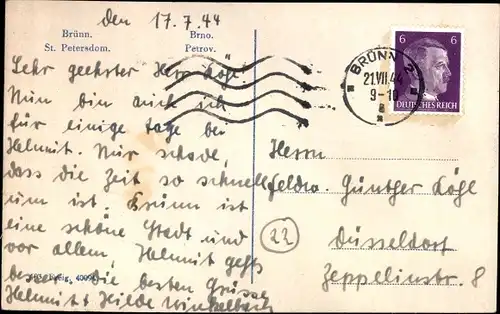 den 17.7.44
Brünn.
St. Petersdom.
Brno.
Petrov.
Sehr geehrter Herr Kögl
Nun bin auch ich
für einige Tage bei
Helmut. Nur schade,
dass die Zeit so schnell
um ist. Brünn ist
eine schöne Stadt und
vor allem, Helmut gehts
besser. Die besten Grüsse
Helmut + Hilde Winkelbach
BRÜNN 2
21.VII.44
9-10
6 6
DEUTSCHES REICH
Herrn
Günther Kögl
22
Düsseldorf
Zeppelinstr. 8